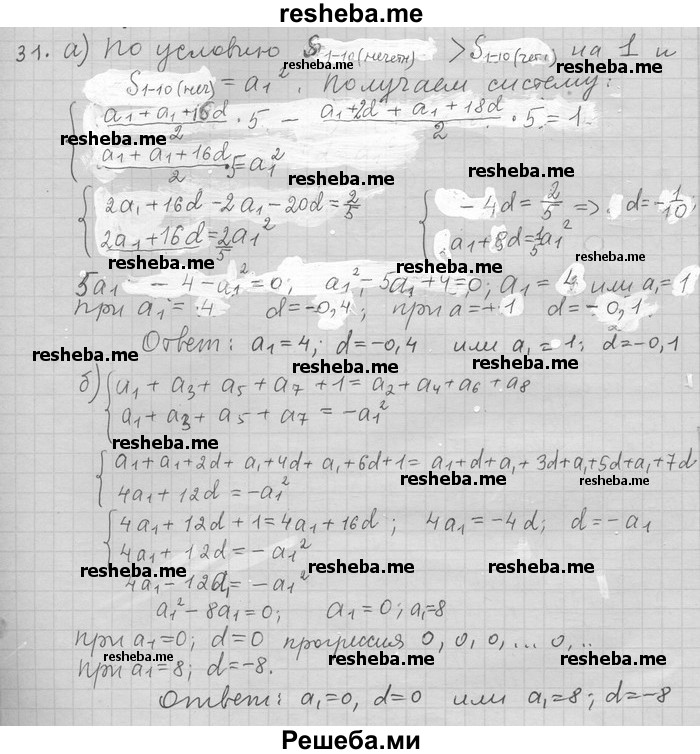 resheba.me
31. а) По условию S₁₋₁₀(нечетн) > S₁₋₁₀(четн) на 1 и
S₁₋₁₀(неч) = a₁². Получаем систему:
{ (a₁ + a₁ + 16d)/2 · 5 − (a₁ + 2d + a₁ + 18d)/2 · 5 = 1.
resheba.me resheba.me
(a₁ + a₁ + 16d)/2 · 5 = a₁²
resheba.me
{ 2a₁ + 16d − 2a₁ − 20d = 2/5 { − 4d = 2/5 => d = −1/10,
2a₁ + 16d = 2/5 a₁² a₁ + 8d = 1/5 a₁²
resheba.me resheba.me
5a₁ − 4 − a₁² = 0, a₁² − 5a₁ + 4 = 0; a₁ = 4 или a₁ = 1
при a₁ = 4 d = −0,4; при a = 1 d = − 0,1.
resheba.me resheba.me
Ответ: a₁ = 4; d = −0,4 или a₁ = 1; d = −0,1
resheba.me resheba.me
б) { a₁ + a₃ + a₅ + a₇ + 1 = a₂ + a₄ + a₆ + a₈
a₁ + a₃ + a₅ + a₇ = −a₁²
resheba.me
{ a₁ + a₁ + 2d + a₁ + 4d + a₁ + 6d + 1 = a₁ + d + a₁ + 3d + a₁ + 5d + a₁ + 7d
4a₁ + 12d = −a₁²
resheba.me resheba.me
{ 4a₁ + 12d + 1 = 4a₁ + 16d; 4a₁ = −4d; d = −a₁
4a₁ + 12d = − a₁²
resheba.me resheba.me
4a₁ − 12a₁ = −a₁²
a₁² − 8a₁ = 0; a₁ = 0; a₁ = 8
при a₁ = 0; d = 0 прогрессия 0, 0, 0, ... 0, ..
resheba.me resheba.me
при a₁ = 8; d = −8.
Ответ: a₁ = 0, d = 0 или a₁ = 8; d = −8
Решеба.ми